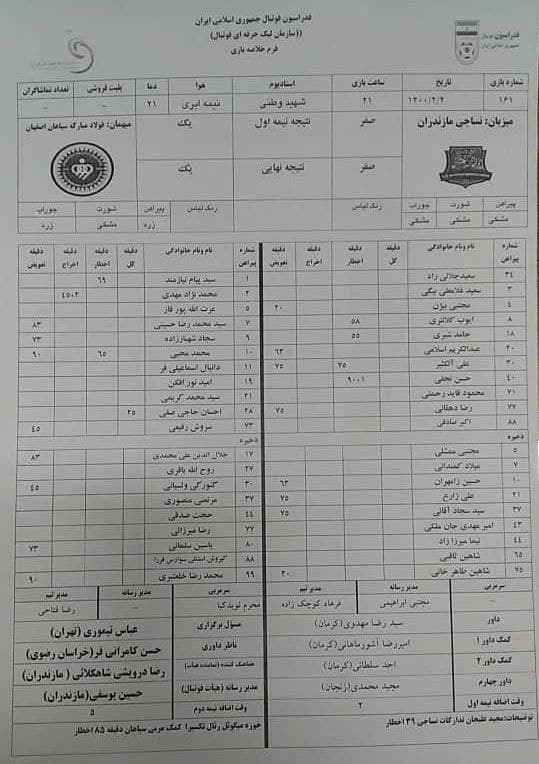 فدراسیون فوتبال جمهوری اسلامی ایران
((سازمان لیگ حرفه ای فوتبال))
فرم خلاصه بازی
فدراسیون فوتبال
جمهوری اسلامی ایران
شماره بازی تاریخ ساعت بازی استادیوم هوا دما بلیت فروشی تعداد تماشاگران
۱۶۱ ۱۴۰۰/۲/۲ ۲۱ شهید وطنی نیمه ابری ۲۱ – –
میزبان: نساجی مازندران صفر نتیجه نیمه اول یک میهمان: فولاد مبارکه سپاهان اصفهان
صفر نتیجه نهایی یک
پیراهن شورت جوراب رنگ لباس رنگ لباس پیراهن شورت جوراب
مشکی مشکی مشکی زرد مشکی زرد
شماره پیراهن نام ونام خانوادگی دقیقه گل دقیقه اخطار دقیقه اخراج دقیقه تعویض
۳۴ سعیدجلالی راد
۳ سعید غلامعلی بیگی
۴ مجتبی بیژن ۲۰
۸ ایوب کلانتری ۵۸
۱۸ حامد شیری ۵۵
۲۰ عبدالکریم اسلامی ۶۳
۳۰ علی آلکثیر ۷۵ ۷۵
۴۰ حسن نجفی ۹۰+۱
۷۱ محمود قاید رحمتی
۷۷ رضا دهقانی ۷۵
۸۸ اکبر صادقی
ذخیره
۵ مجتبی ممشلی
۷ میلاد کمندانی
۱۰ حسین زامهران ۶۳
۲۱ علی زارع ۷۵
۳۷ سید سجاد آقائی ۷۵
۴۳ امیر مهدی جان ملکی
۴۴ نیما میرزا زاد
۶۵ شاهین ثاقبی
۷۵ شاهین طاهر خانی ۲۰
شماره پیراهن نام ونام خانوادگی دقیقه گل دقیقه اخطار دقیقه اخراج دقیقه تعویض
۱ سید پیام نیازمند ۶۹
۲ محمد نژاد مهدی ۴۵+۲
۵ عزت الله پور قاز
۷ سید محمد رضا حسینی ۸۳
۹ سجاد شهباززاده ۷۳
۱۰ محمد محبی ۶۵ ۹۰
۱۱ دانیال اسماعیلی فر
۱۹ امید نور افکن
۲۱ سید محمد کریمی
۲۸ احسان حاجی صفی ۲۵
۷۳ سروش رفیعی ۴۵
ذخیره
۱۷ جلال الدین علی محمدی ۸۳
۲۷ روح الله باقری
۳۰ گئورگی ولسیانی ۴۵
۳۷ مرتضی منصوری
۴۴ حجت صدقی
۷۷ رضا میرزائی
۸۰ یاسین سلمانی ۷۳
۸۸ کیروش استنلی سوارس فررا
۹۹ محمد رضا خلعتبری ۹۰
سرمربی مدیر رسانه مدیر تیم
– مجتبی ابراهیمی فرهاد کوچک زاده
سرمربی مدیر رسانه مدیر تیم
محرم نویدکیا – رضا فتاحی
داور سید رضا مهدوی(کرمان)
کمک داور ۱ امیررضا آشورماهانی(کرمان)
کمک داور ۲ احد سلطانی(کرمان)
داور چهارم مجید محمدی(زنجان)
وقت اضافه نیمه اول ۲
مسؤل برگزاری عباس تیموری (تهران)
ناظر داوری حسن کامرانی فر(خراسان رضوی)
هماهنگ کننده (نماینده هیأت) رضا درویشی شاهکلائی ( مازندران)
مدیر رسانه (هیأت فوتبال) حسین یوسفی(مازندران)
وقت اضافه نیمه دوم ۵
توضیحات:مجید علیجان تدارکات نساجی ۳۹ اخطار
حوزه میگوئل رئال تکسیرا کمک مربی سپاهان دقیقه ۸۵ اخطار